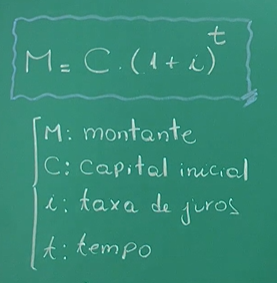 M = C . (1 + i)^t
M: montante
C: capital inicial
i: taxa de juros
t: tempo